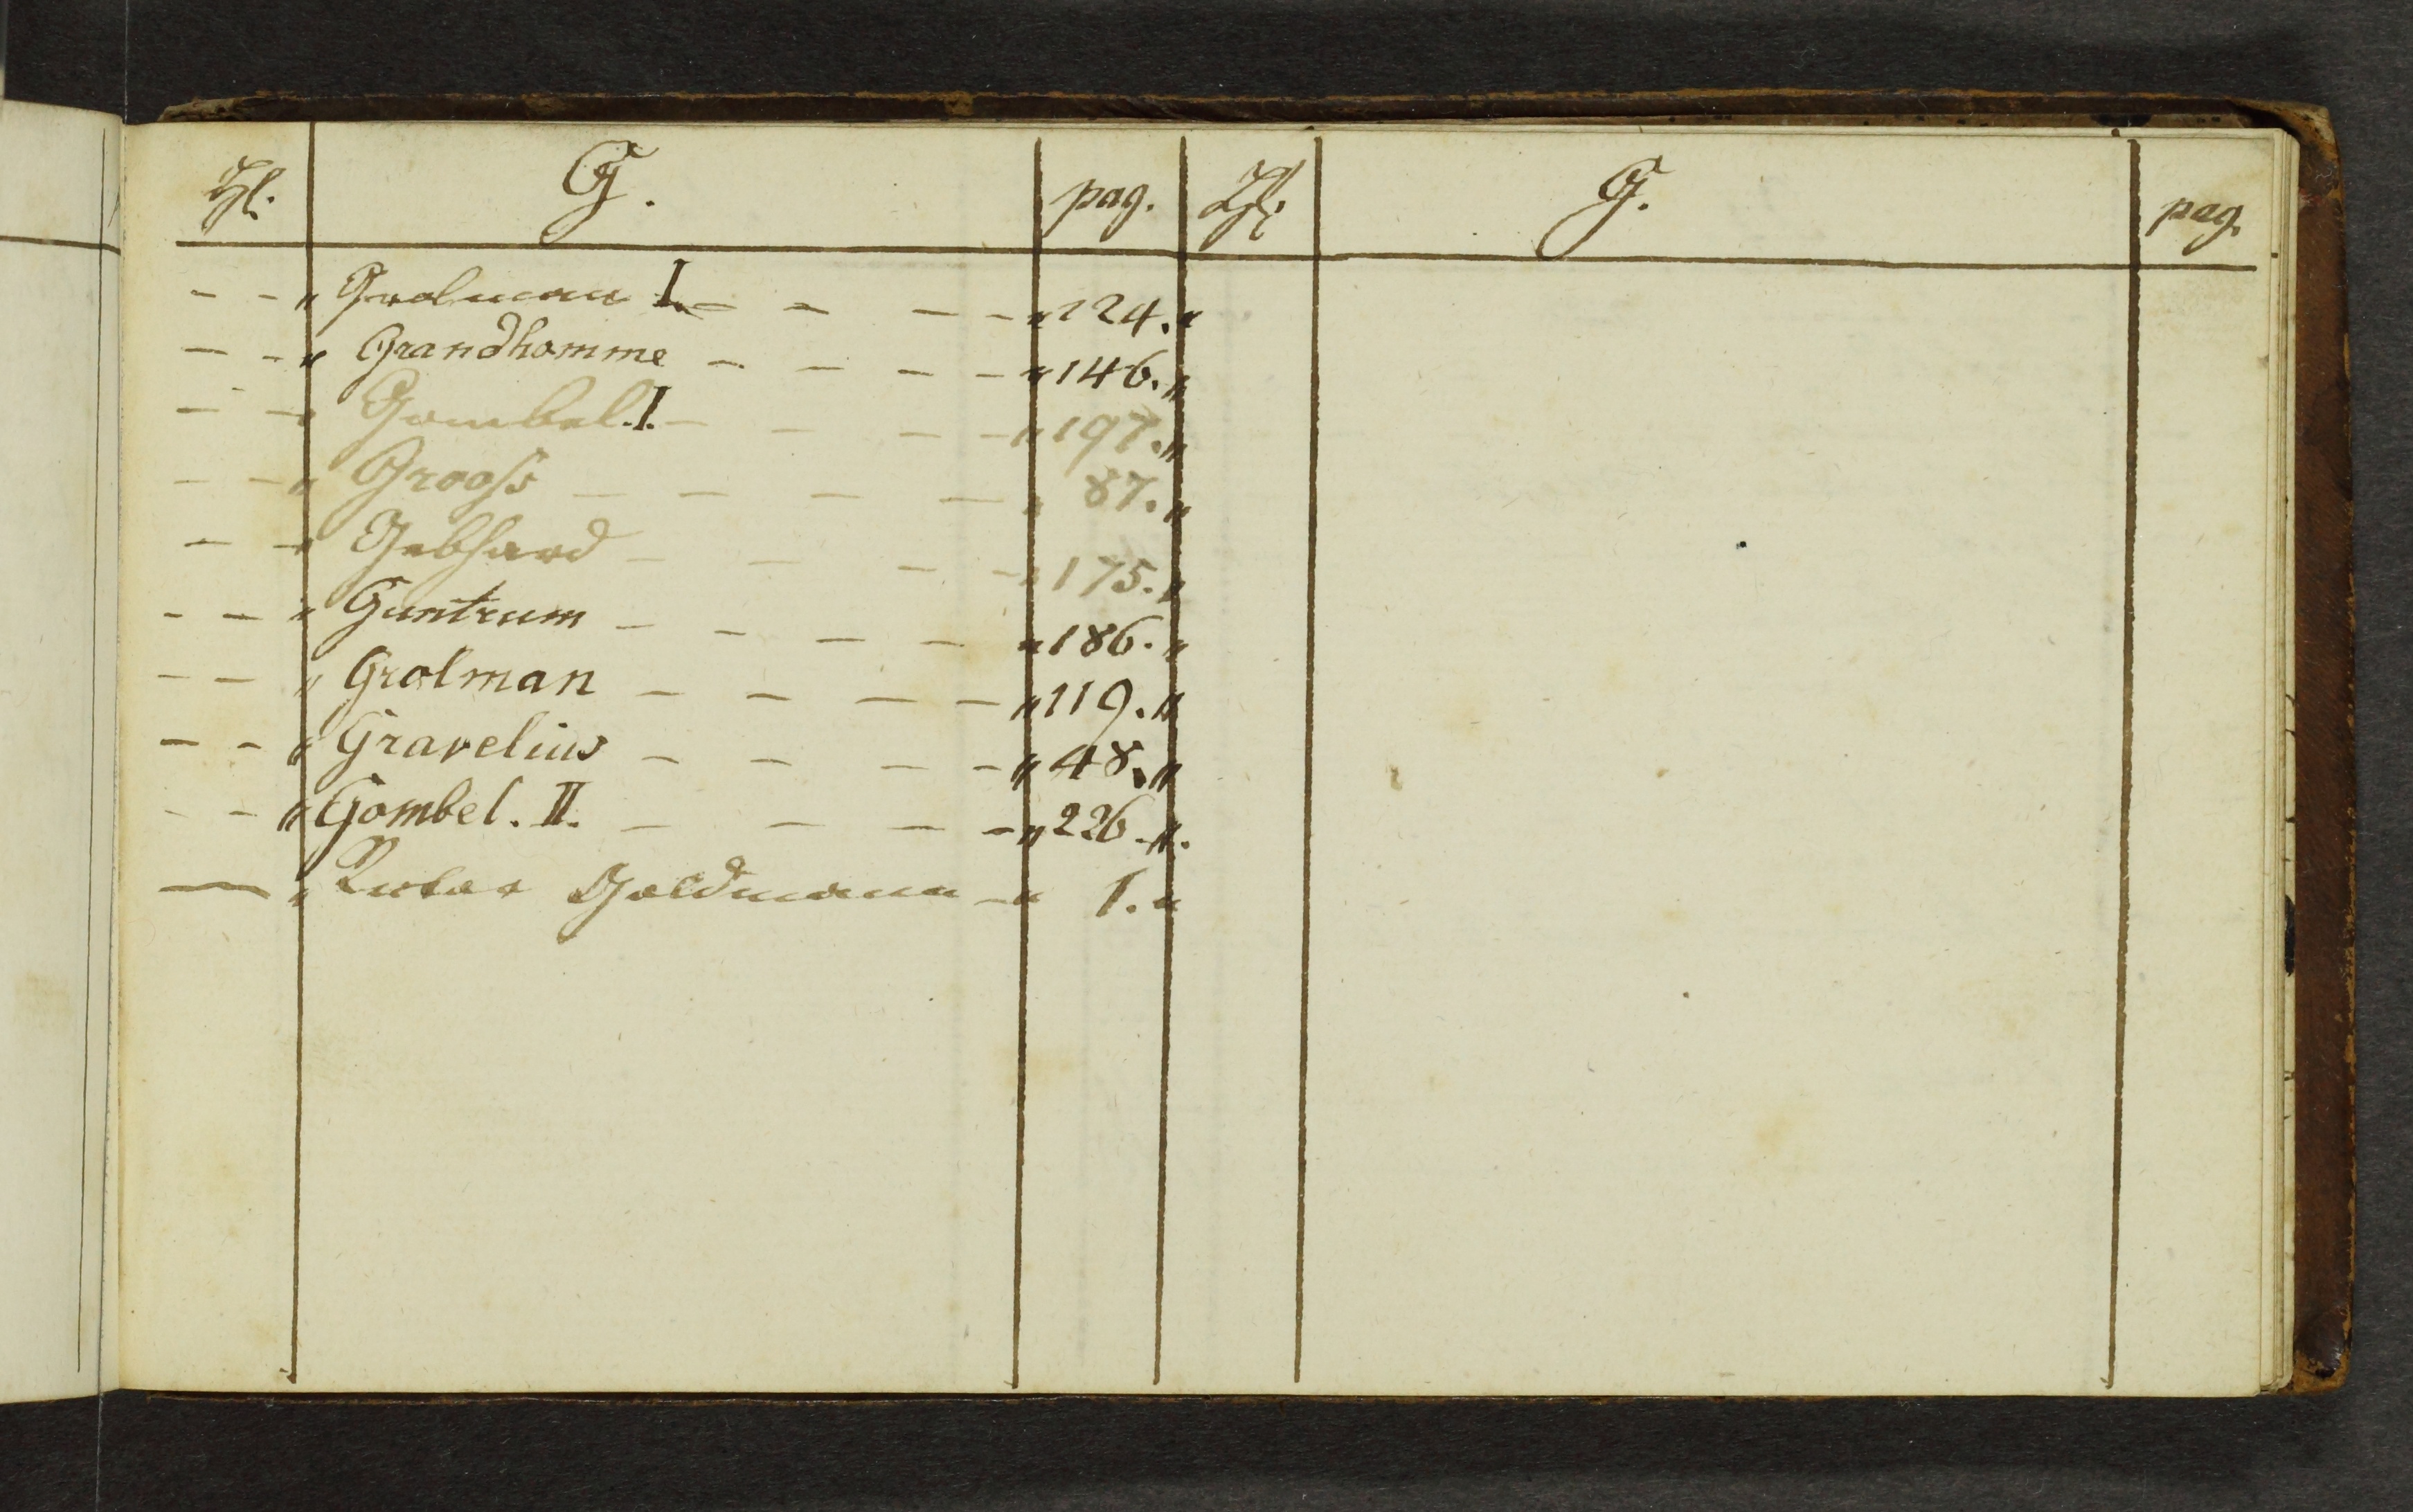 Zhl. G. pag. Zhl. G. pag.
– – „ Grolman I. – – – – „ 124. „
– – „ Grandhomme – – – – „ 146. „
– – „ Gombel. I. – – – – „ 197. „
– – „ Grooß – – – – „ 87. „
– – „ Gebhard – – – – „ 175. „
– – „ Guntrum – – – – „ 186. „
– – „ Grolman – – – – „ 119. „
– – „ Gravelius – – – – „ 48. „
– – „ Gombel. II. – – – – „ 226. „.
— „ Goldmann – „ 1. „